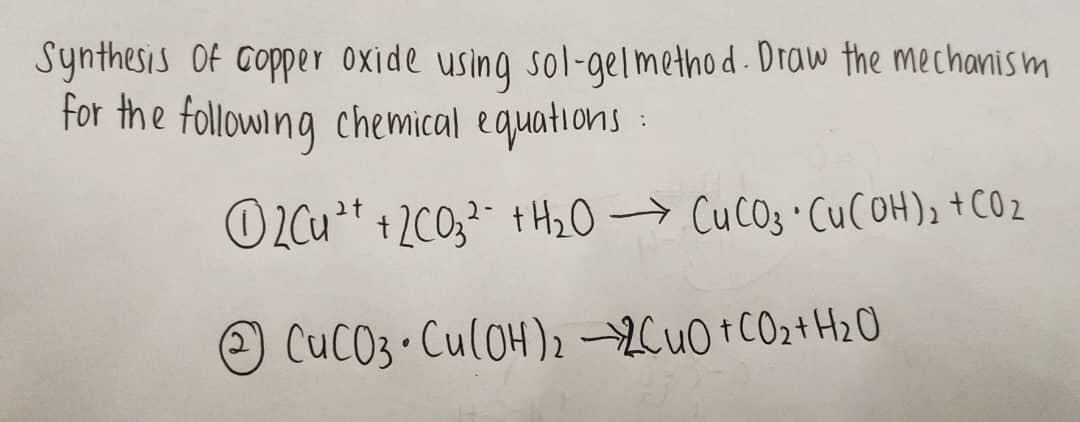 Synthesis of copper oxide using sol-gel method. Draw the mechanism
for the following chemical equations :
① 2Cu²⁺ + 2CO₃²⁻ + H₂O → CuCO₃ · Cu(OH)₂ + CO₂
② CuCO₃ · Cu(OH)₂ → 2CuO + CO₂ + H₂O